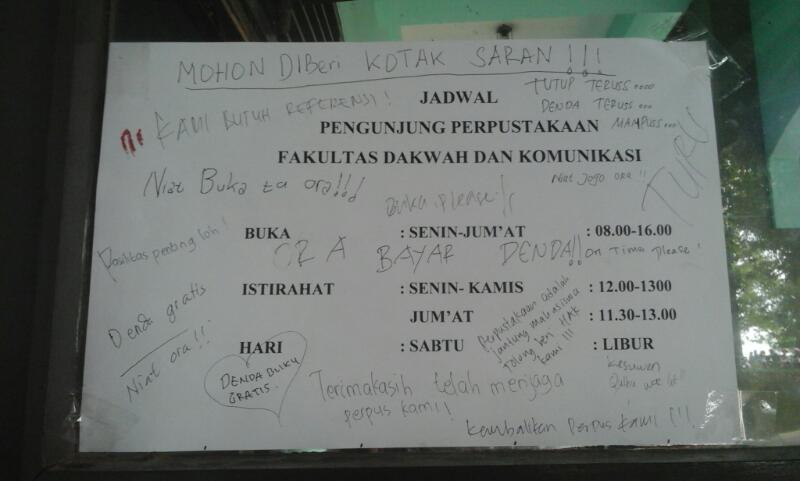 MOHON DIBeri KOTAK SARAN !!!
KAMI BUTUH REFERENSI !
JADWAL
TUTUP TERUSS....
DENDA TERUS...
PENGUNJUNG PERPUSTAKAAN
MAMPUSS...
FAKULTAS DAKWAH DAN KOMUNIKASI
TURU
Niat Jogo ora !!
Niat Buka ta ora!!!
Buka please
BUKA : SENIN-JUM'AT : 08.00-16.00
Fasilitas penting loh !
ORA BAYAR DENDA!!
On Time Please !
ISTIRAHAT : SENIN- KAMIS : 12.00-1300
JUM'AT : 11.30-13.00
Denda gratis
Niat ora !!
Perpustakaan adalah
jantung mahasiswa
tolong beri HAK
kami !!!
HARI : SABTU : LIBUR
DENDA BUKU
GRATIS.
Terimakasih telah menjaga
perpus kami !
kesuwen
Kembalikan Perpus Kami !!!